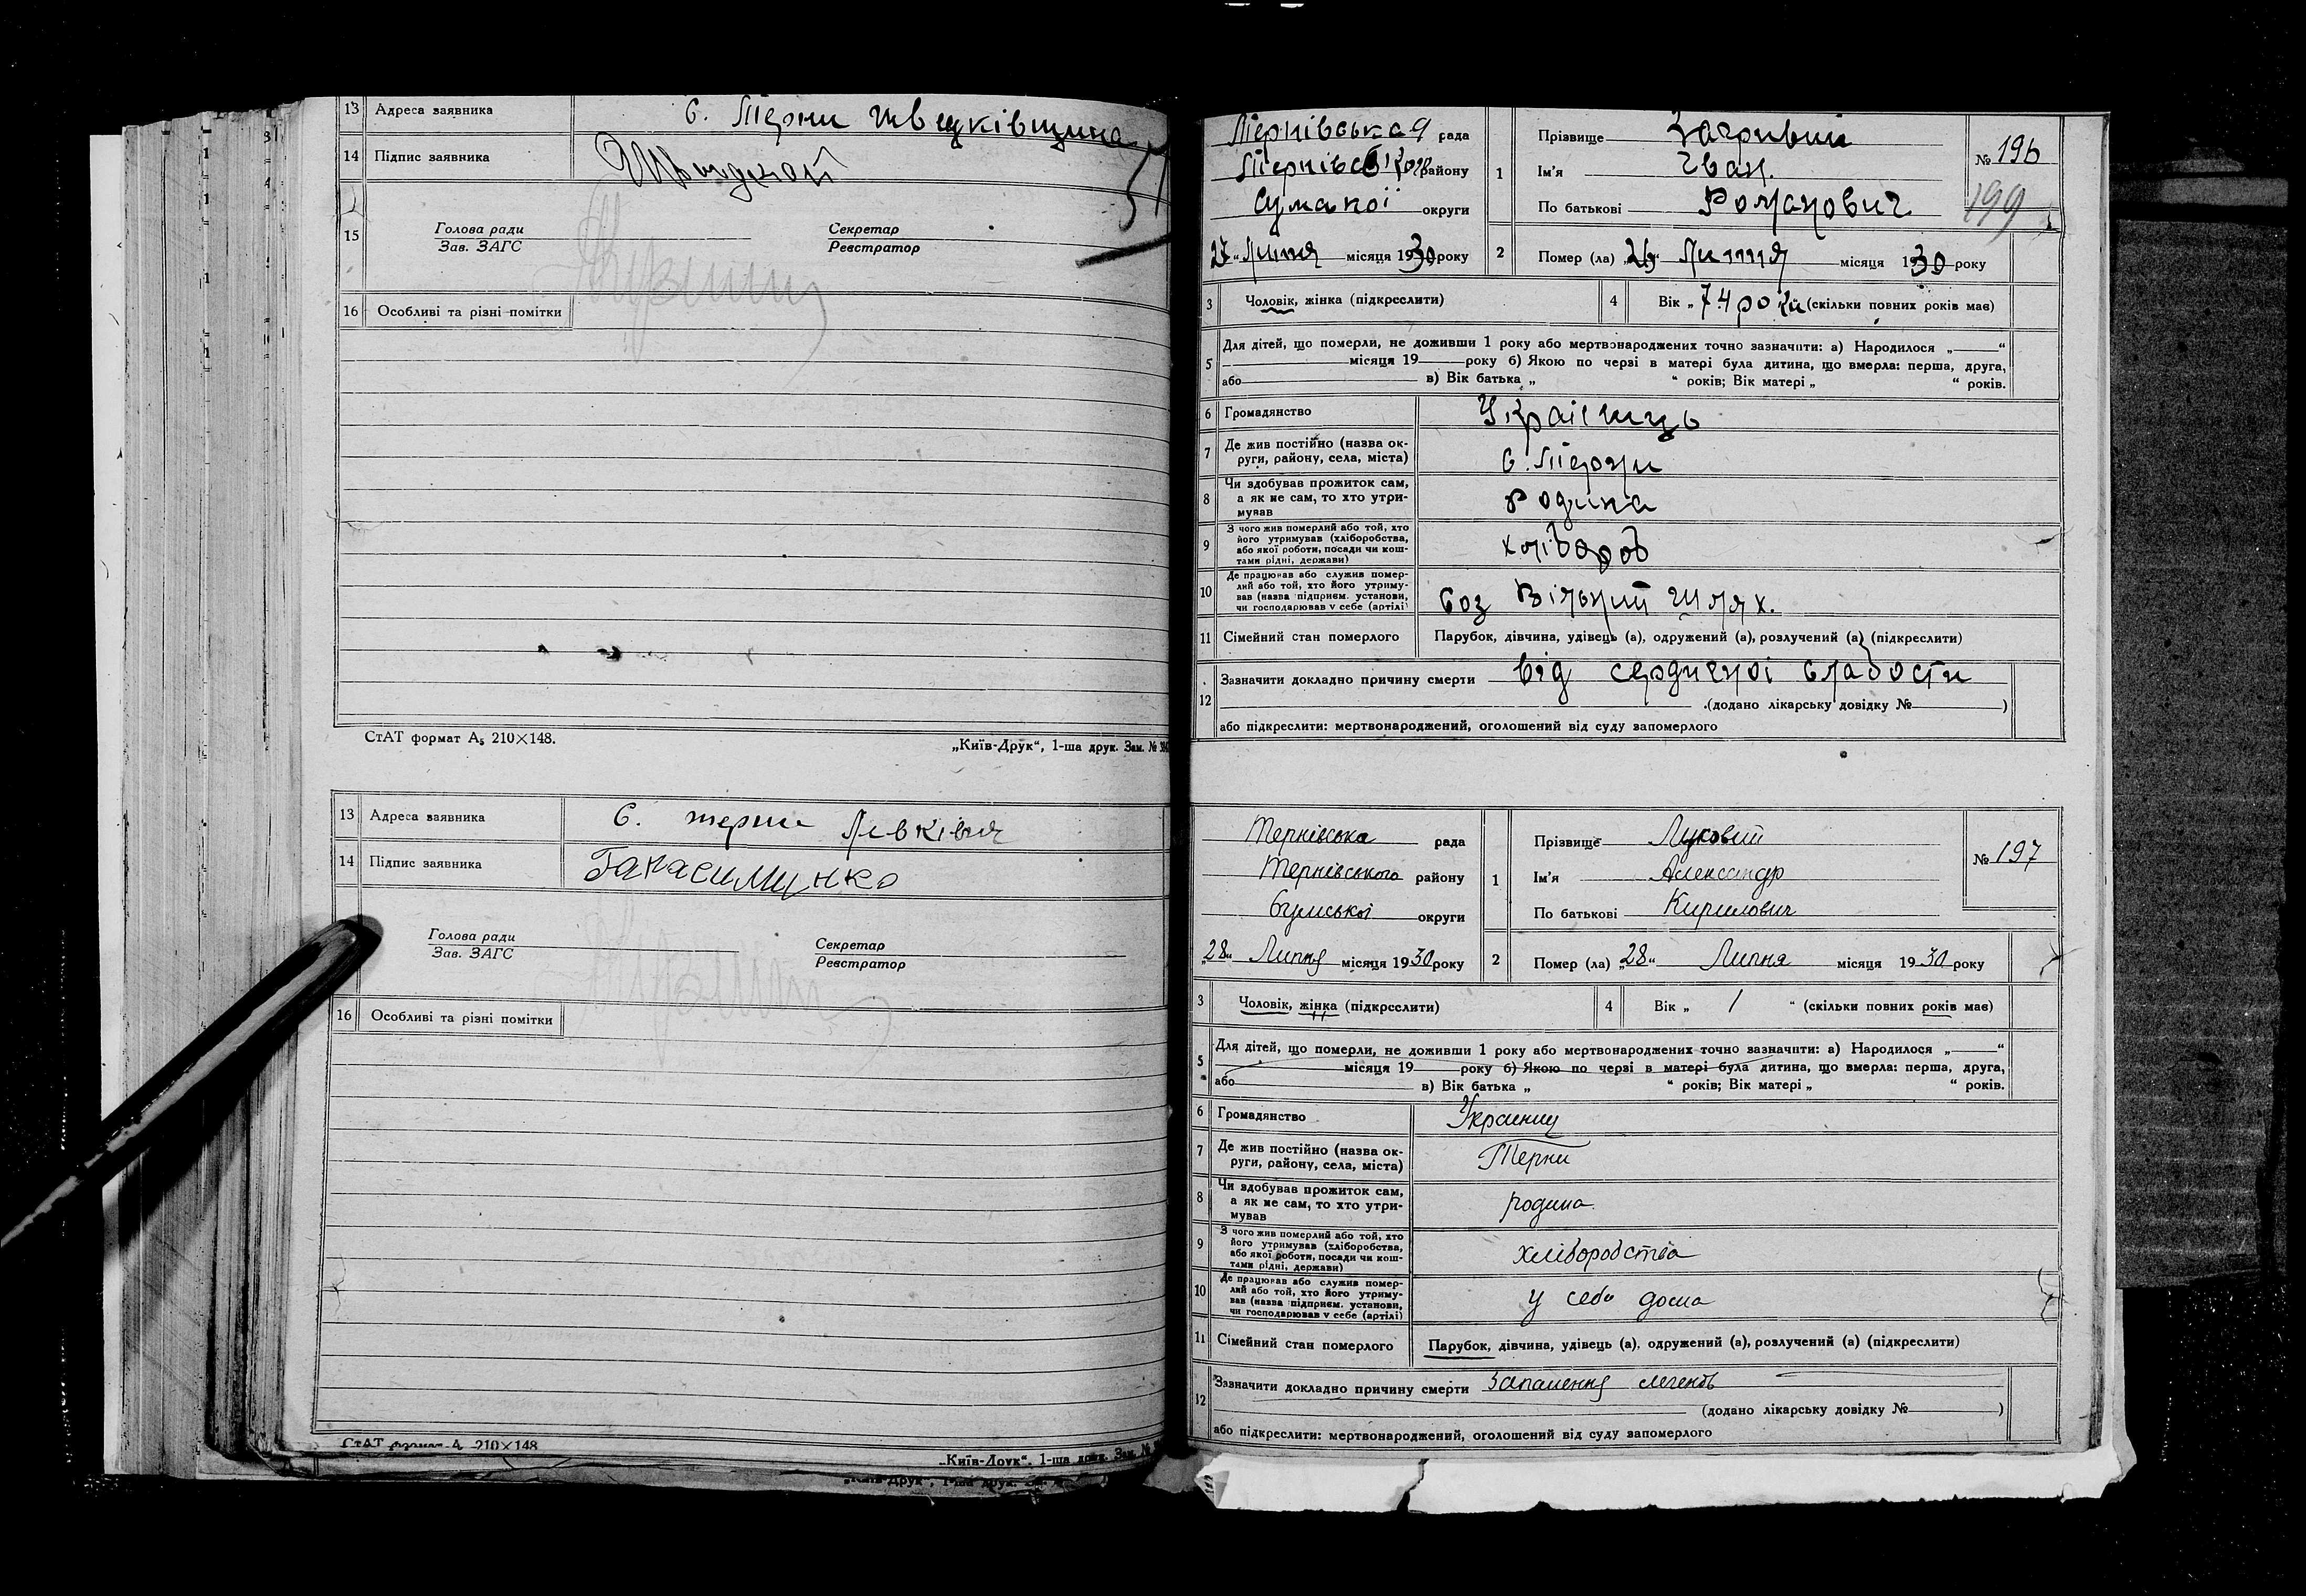 13 Адреса заявника с. Терни Швидківщина
14 Підпис заявника
15 Голова ради Секретар
Зав. ЗАГС Реєстратор
16 Особливі та різні помітки
СтАТ формат А5 210×148. „Київ-Друк“, 1-ша друк. Зам. №
13 Адреса заявника С. терни
14 Підпис заявника
Голова ради Секретар
Зав. ЗАГС Реєстратор
16 Особливі та різні помітки
СтАТ формат А 210×148
„Київ-Друк“, 1-ша друк. Зам. №
„Київ-Друк“, 1-ша друк.
Тернівська рада
району
Сумської округи
27 „ Липня місяця 1930 року
1 Прізвище
Ім'я Іван
По батькові Романович
№ 196
199
2 Помер (ла) „26“ Липня місяця 1930 року
3 Чоловік, жінка (підкреслити) 4 Вік „ 74 роки (скільки повних років має)
5 Для дітей, що померли, не доживши 1 року або мертвонароджених точно зазначити: а) Народилося „ “
місяця 19 року б) Якою по черзі в матері була дитина, що вмерла: перша, друга,
або в) Вік батька „ “ років; Вік матері „ “ років.
6 Громадянство Українець
7 Де жив постійно (назва ок-
руги, району, села, міста) с. Терни
8 Чи здобував прожиток сам,
а як не сам, то хто утри-
мував Родина
9 З чого жив померлий або той, хто
його утримував (хліборобства,
або якої роботи, посади чи кош-
тами рідні, держави) хлібороб
10 Де працював або служив помер-
лий або той, хто його утриму-
вав (назва підприєм. установи,
чи господарював у себе (артілі) Соз Вільний Шлях.
11 Сімейний стан померлого Парубок, дівчина, удівець (а), одружений (а), розлучений (а) (підкреслити)
12 Зазначити докладно причину смерти Від сердечної слабости
(додано лікарську довідку № )
або підкреслити: мертвонароджений, оголошений від суду запомерлого
Тернівська рада
Тернівського району
Сумської округи
„28“ Липня місяця 1930 року
1 Прізвище Луковий
Ім'я Александр
По батькові Кирилович
№ 197
2 Помер (ла) „28“ Липня місяця 1930 року
3 Чоловік, жінка (підкреслити) 4 Вік „ 1 “ (скільки повних років має)
5 Для дітей, що померли, не доживши 1 року або мертвонароджених точно зазначити: а) Народилося „ “
місяця 19 року б) Якою по черзі в матері була дитина, що вмерла: перша, друга,
або в) Вік батька „ “ років; Вік матері „ “ років.
6 Громадянство Украинец
7 Де жив постійно (назва ок-
руги, району, села, міста) Терни
8 Чи здобував прожиток сам,
а як не сам, то хто утри-
мував родина.
9 З чого жив померлий або той, хто
його утримував (хліборобства,
або якої роботи, посади чи кош-
тами рідні, держави) хліборобства
10 Де працював або служив помер-
лий або той, хто його утриму-
вав (назва підприєм. установи,
чи господарював у себе (артілі) у себе дома
11 Сімейний стан померлого Парубок, дівчина, удівець (а), одружений (а), розлучений (а) (підкреслити)
12 Зазначити докладно причину смерти Запалення легенів
(додано лікарську довідку № )
або підкреслити: мертвонароджений, оголошений від суду запомерлого